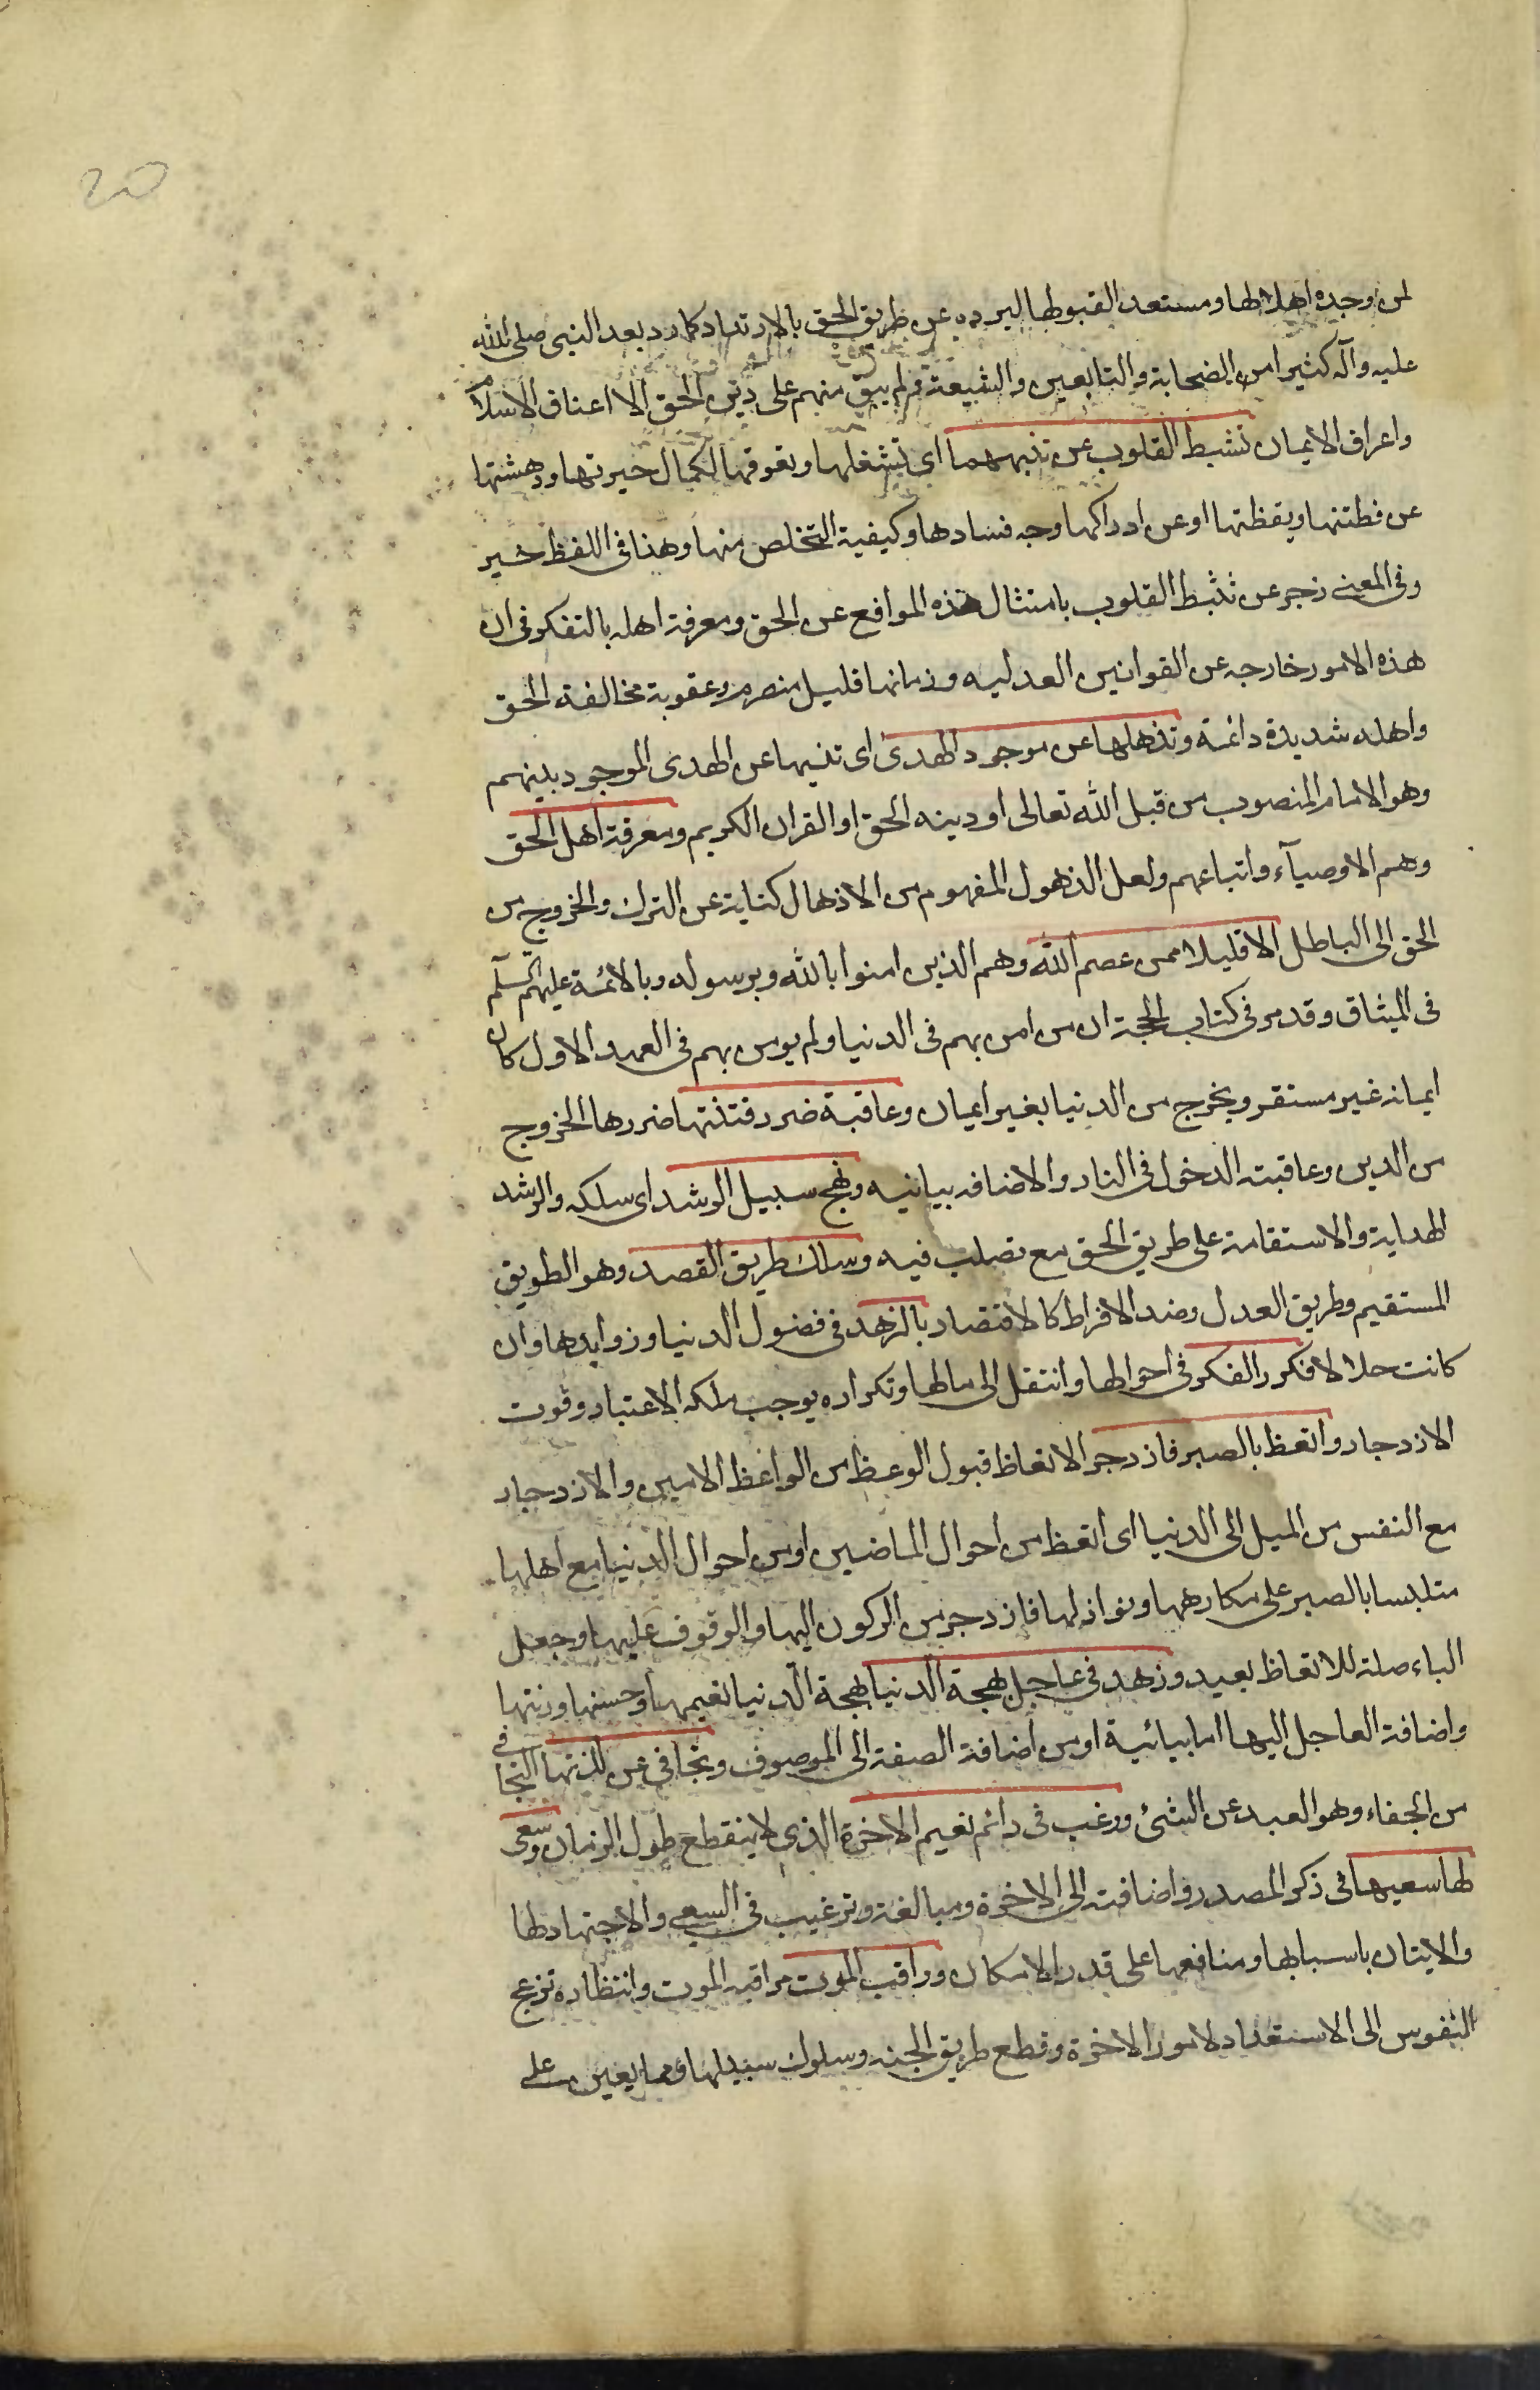 20
لمن وجده اهلا لها ومستعدا لقبولها ليرده عن طريق الحق بالارتداد كما رد بعد النبى صلى الله
عليه وآله كثيرا من الصحابة والتابعين والشيعة فلم يبق منهم على دين الحق الا اعناق الاسلام
واعراق الايمان تثبط القلوب عن تنبهها اى تشغلها وتعوقها لكمال حيرتها ودهشتها
عن فطنتها ويقظتها او عن ادراكها وجه فسادها وكيفية التخلص منها وهذا فى اللفظ خبر
وفى المعنى زجر عن تثبط القلوب بامتثال هذه الموافع عن الحق ومعرفة اهله بالتفكر فى ان
هذه الامور خارجه عن القوانين العدليه وزمانها قليل منصرم وعقوبة مخالفة الحق
واهله شديدة دائمة وتذهلها عن موجود الهدى اى تنسيها عن الهدى الموجود بينهم
وهو الامام المنصوب من قبل الله تعالى او دينه الحق او القران الكريم ومعرفة اهل الحق
وهم الاوصيآء واتباعهم ولعل الذهول المفهوم من الاذهال كناية عن الترك والخروج من
الحق الى الباطل الا قليلا ممن عصم الله وهم الذين امنوا بالله وبرسوله وبالائمة عليهم السلم
فى الميثاق وقد مر فى كتاب الحجة ان من امن بهم فى الدنيا ولم يومن بهم فى العهد الاول كان
ايمانه غير مستقر ويخرج من الدنيا بغير ايمان وعاقبة ضرر فتنتها ضررها الخروج
من الدين وعاقبته الدخول فى النار والاضافه بيانيه ونهج سبيل الرشد اى سلكه والرشد
الهداية والاستقامة على طريق الحق مع تصلب فيه وسلك طريق القصد وهو الطريق
المستقيم وطريق العدل وضد الافراط كالاقتصاد بالزهد فى فضول الدنيا وزوايدها وان
كانت حلالا فكرر الفكر فى احوالها وانتقل الى مالها وتكراره يوجب ملكه الاعتبار وقوت
الازدجار واتعظ بالصبر فازدجر الاتعاظ قبول الوعظ من الواعظ الامين والازدجار
مع النفس من الميل الى الدنيا اى اتعظ من احوال الماضين او من احوال الدنيا مع اهلها
متلبسا بالصبر على مكارهها ونوازلها فازدجر من الركون اليها والوقوف عليها وجعل
الباء صلة للاتعاظ بعيد وزهد فى عاجل بهجة الدنيا بهجة الدنيا نعيمها وحسنها وزينتها
واضافة العاجل اليها اما بيائية او من اضافة الصفة الى الموصوف وتجافى عن لذتها التجافى
من الجفاء وهو العبد عن الشئ ورغب فى دائم نعيم الاخرة الذى لا ينقطع طول الزمان وسعى
لها سعيها فى ذكر المصدر واضافته الى الاخرة ومبالغة وترغيب فى السعى والاجتهاد لها
والايتان باسبابها ومنافعها على قدر الامكان وراقب الموت مراقبه الموت وانتظاره تزعج
النفوس الى الاستعداد لامور الاخرة وقطع طريق الجنه وسلوك سبيلها ومما يعين على